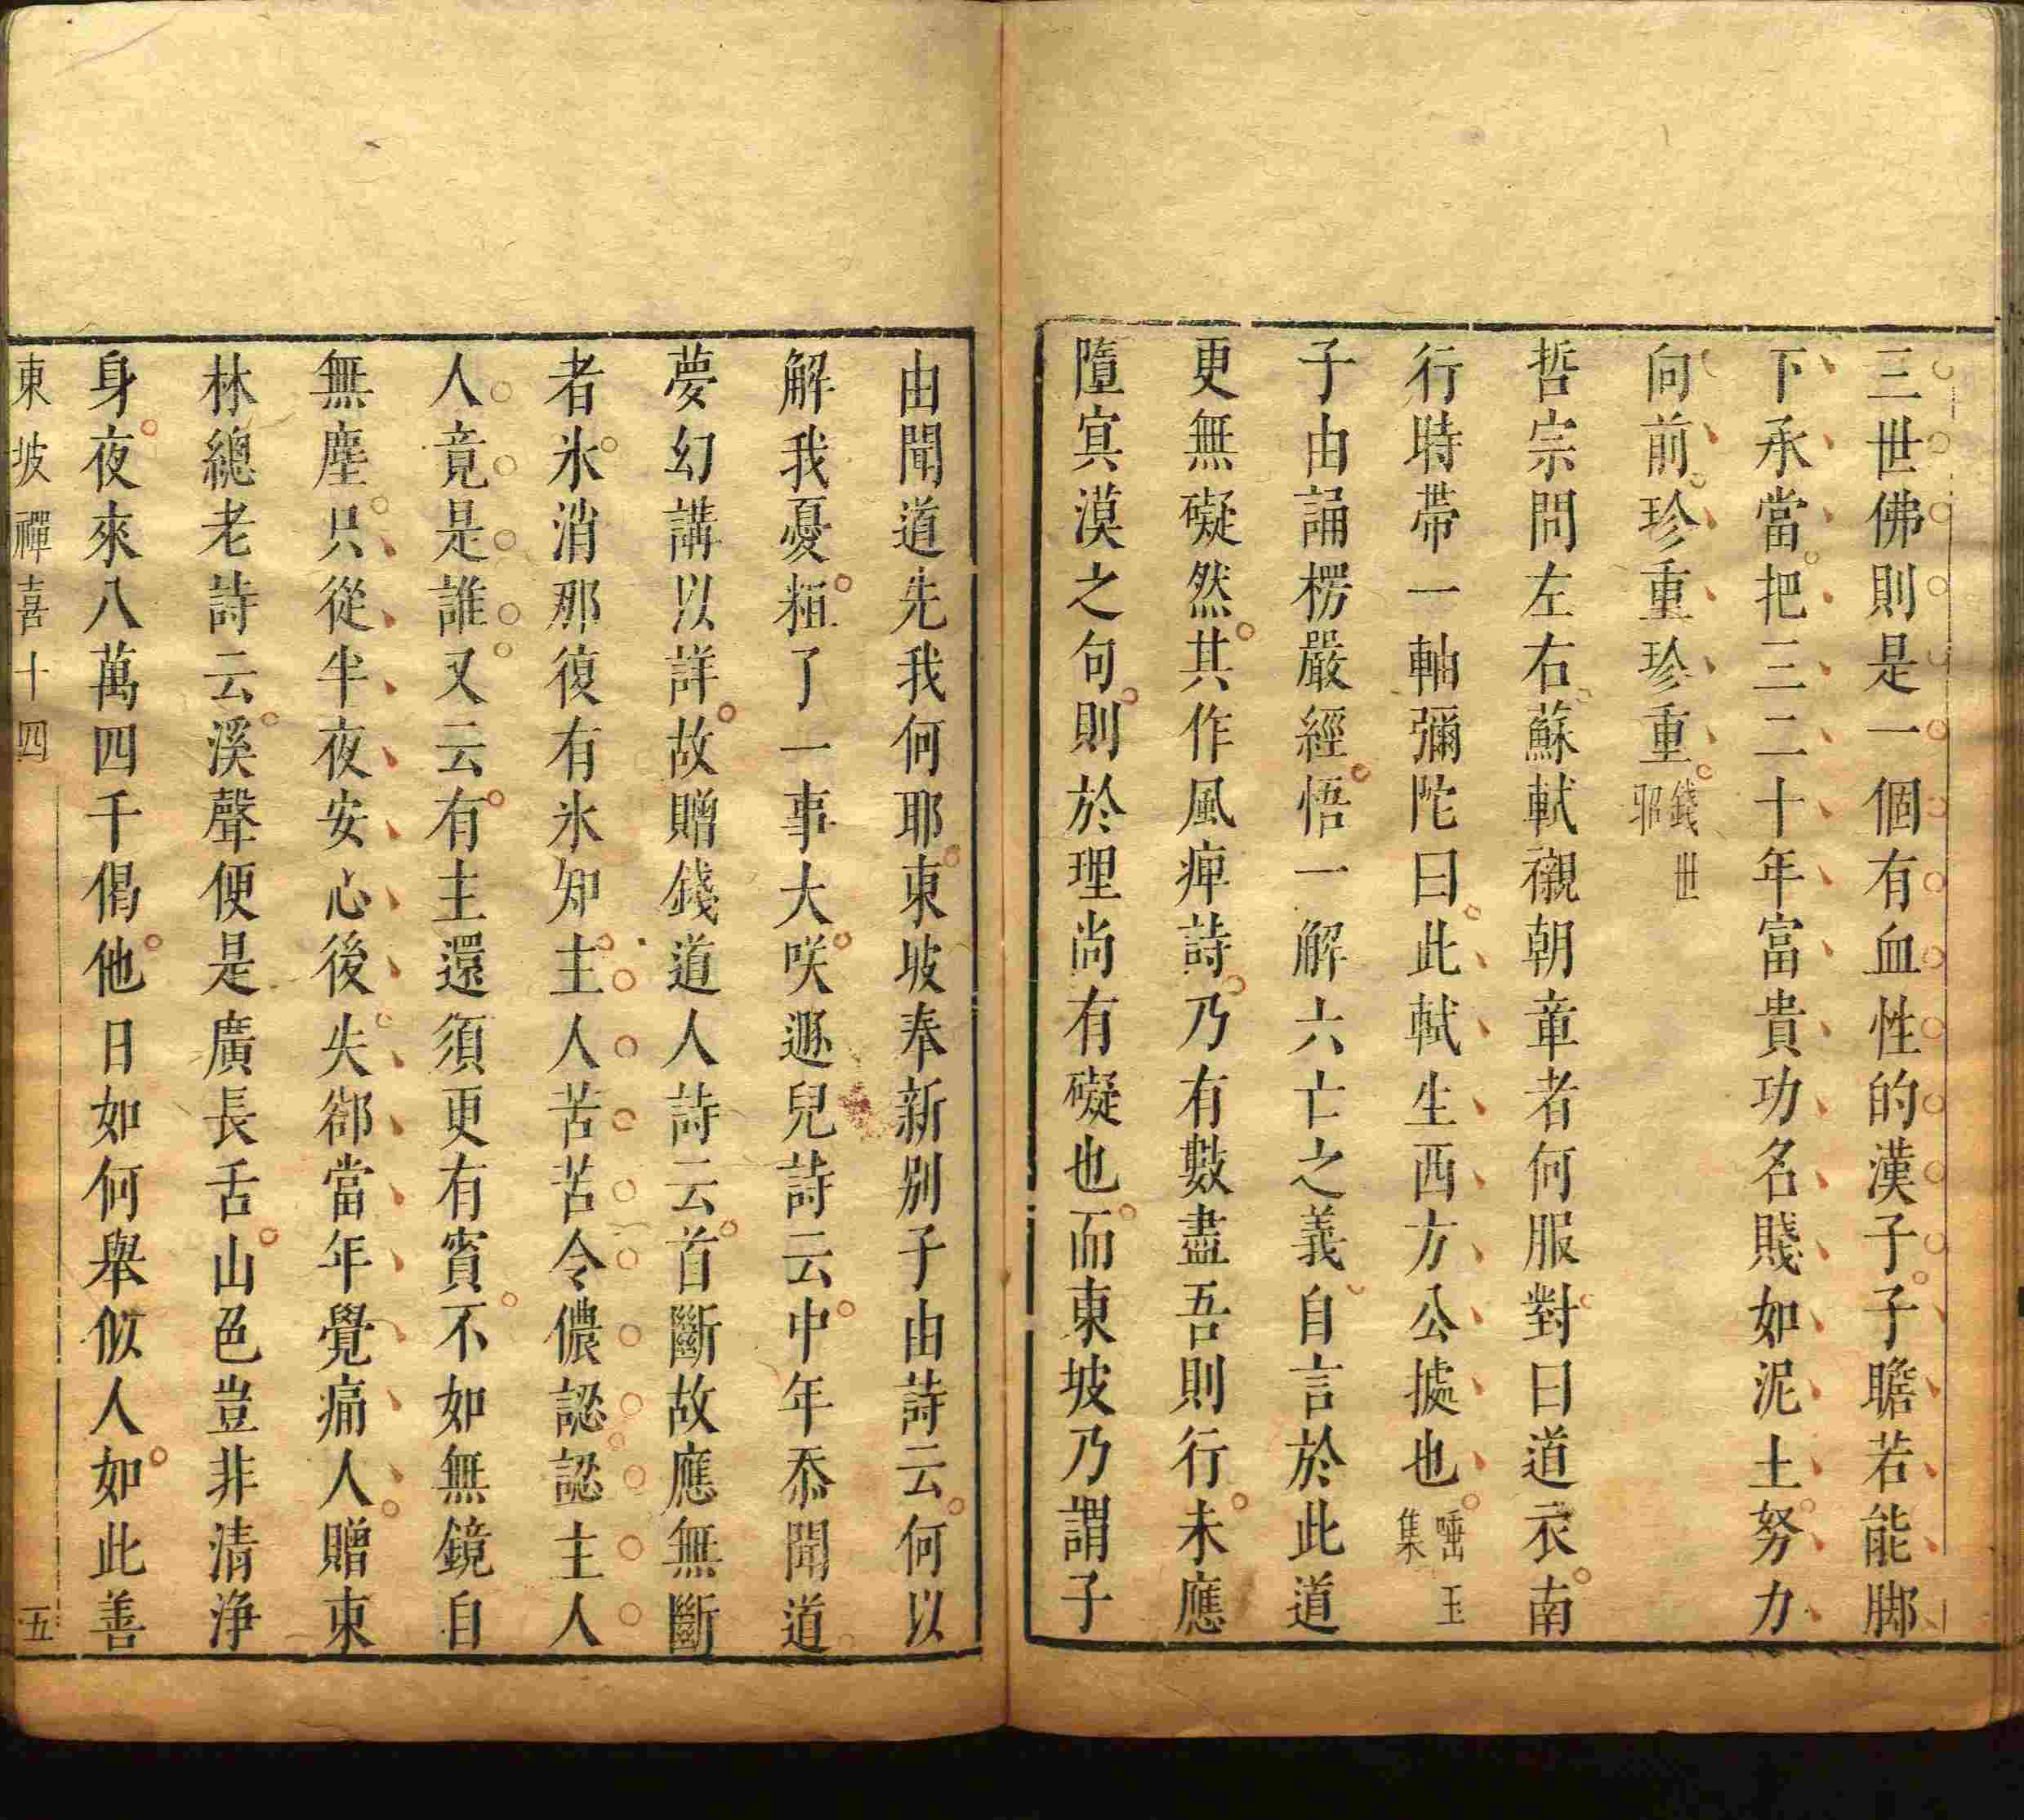 三世佛則是一個有血性的漢子子瞻若能脚
下承當把三二十年富貴功名賤如泥土努力
向前珍重珍重錢世邪
哲宗問左右蘇軾襯朝章者何服對曰道衣南
行時帶一軸彌陀曰此軾生西方公據也唾玉集
子由誦楞嚴經悟一解六亡之義自言於此道
更無礙然其作風痺詩乃有數盡吾則行未應
墮㝠漠之句則於理尚有礙也而東坡乃謂子
由聞道先我何耶東坡奉新别子由詩云何以
解我憂粗了一事大咲遯兒詩云中年忝聞道
夢幻講以詳故贈錢道人詩云首斷故應無斷
者氷消那復有氷知主人苦苦令儂認認主人
人竟是誰又云有主還須更有賓不如無鏡自
無塵只從半夜安心後失卻當年覺痛人贈東
林總老詩云溪聲便是廣長舌山色豈非清浄
身夜來八萬四千偈他日如何舉似人如此善
東坡禪喜十四 五